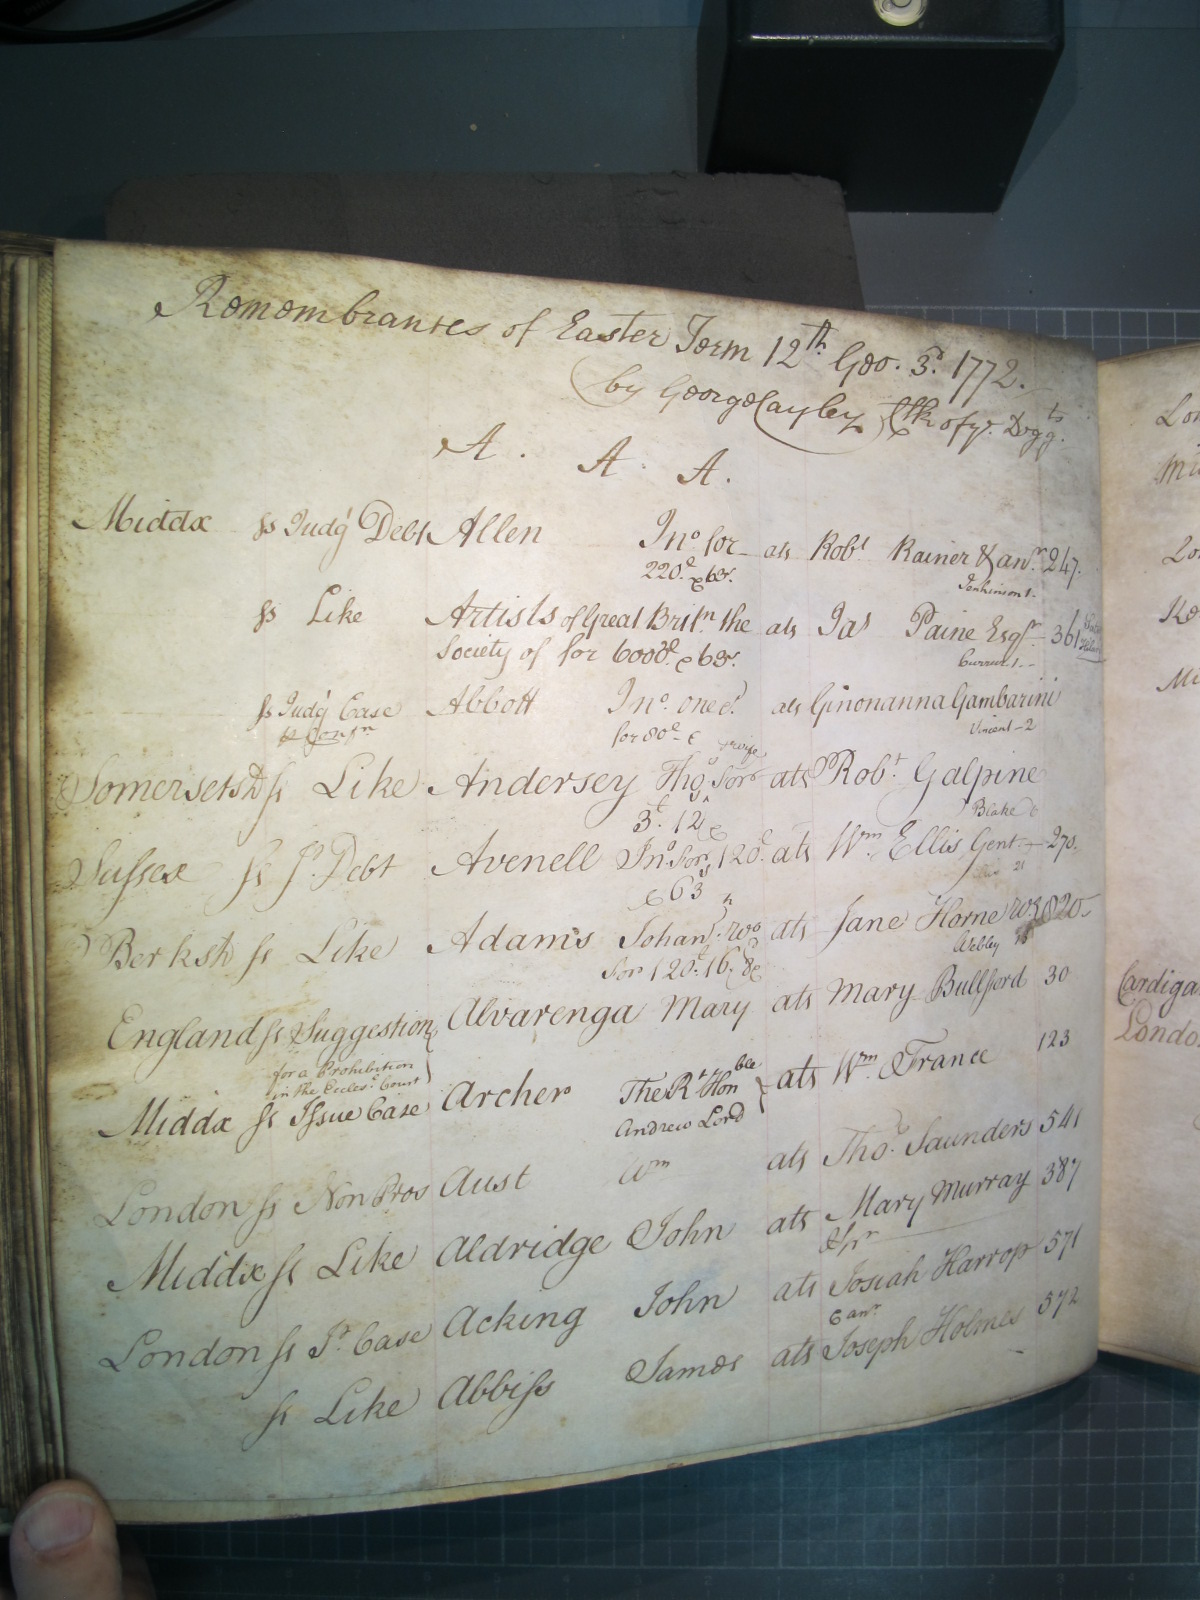 Remembrances of Easter Term 12th Geo. 3d. 1772.
(by George Cayley Clk of ye Dogg.ts
A. A. A.
Middx ss Judg' Debt Allen Jno. for ats Robt Rainer & anr. 247.
220£ & 63s. Jenkinson 1.
ss Like Artists of Great Britn. the ats Jas Paine Esqr. 361
Society of for 6000£ & 63s. Currer 1.
ss Judg' Case Abbott Jno. one &c. ats Ginonanna Gambarini
& Confn for 80£ & Vincent - 2
Somersetsh ss Like Andersey Thos for ats Robt Galpine
wife
3£. 12s Blake
Sussex ss J. Debt Avenell Jno. for 120£ ats Wm Ellis Gent 270.
& 63s 21
Berksh ss Like Adams ats Jane Horne 820
for 120£. 16s. 8 Webley
England ss Suggestion Alvarenga Mary ats Mary Bullford 30
for a Prohibition
in the Eccles. Court
Middx ss Issue Case Archer The Rt Honble ats Wm. France 123
Andrew Lord
London ss Non Pros Aust Wm ats Thos. Saunders 541
Middx ss Like Aldridge John ats Mary Murray 387
London ss J. Case Acking John ats Josiah Harrop 571
& anr
ss Like Abbiss James ats Joseph Holmes 572
Lon
Mi
Lo
Ke
Mi
Cardiga
Londo